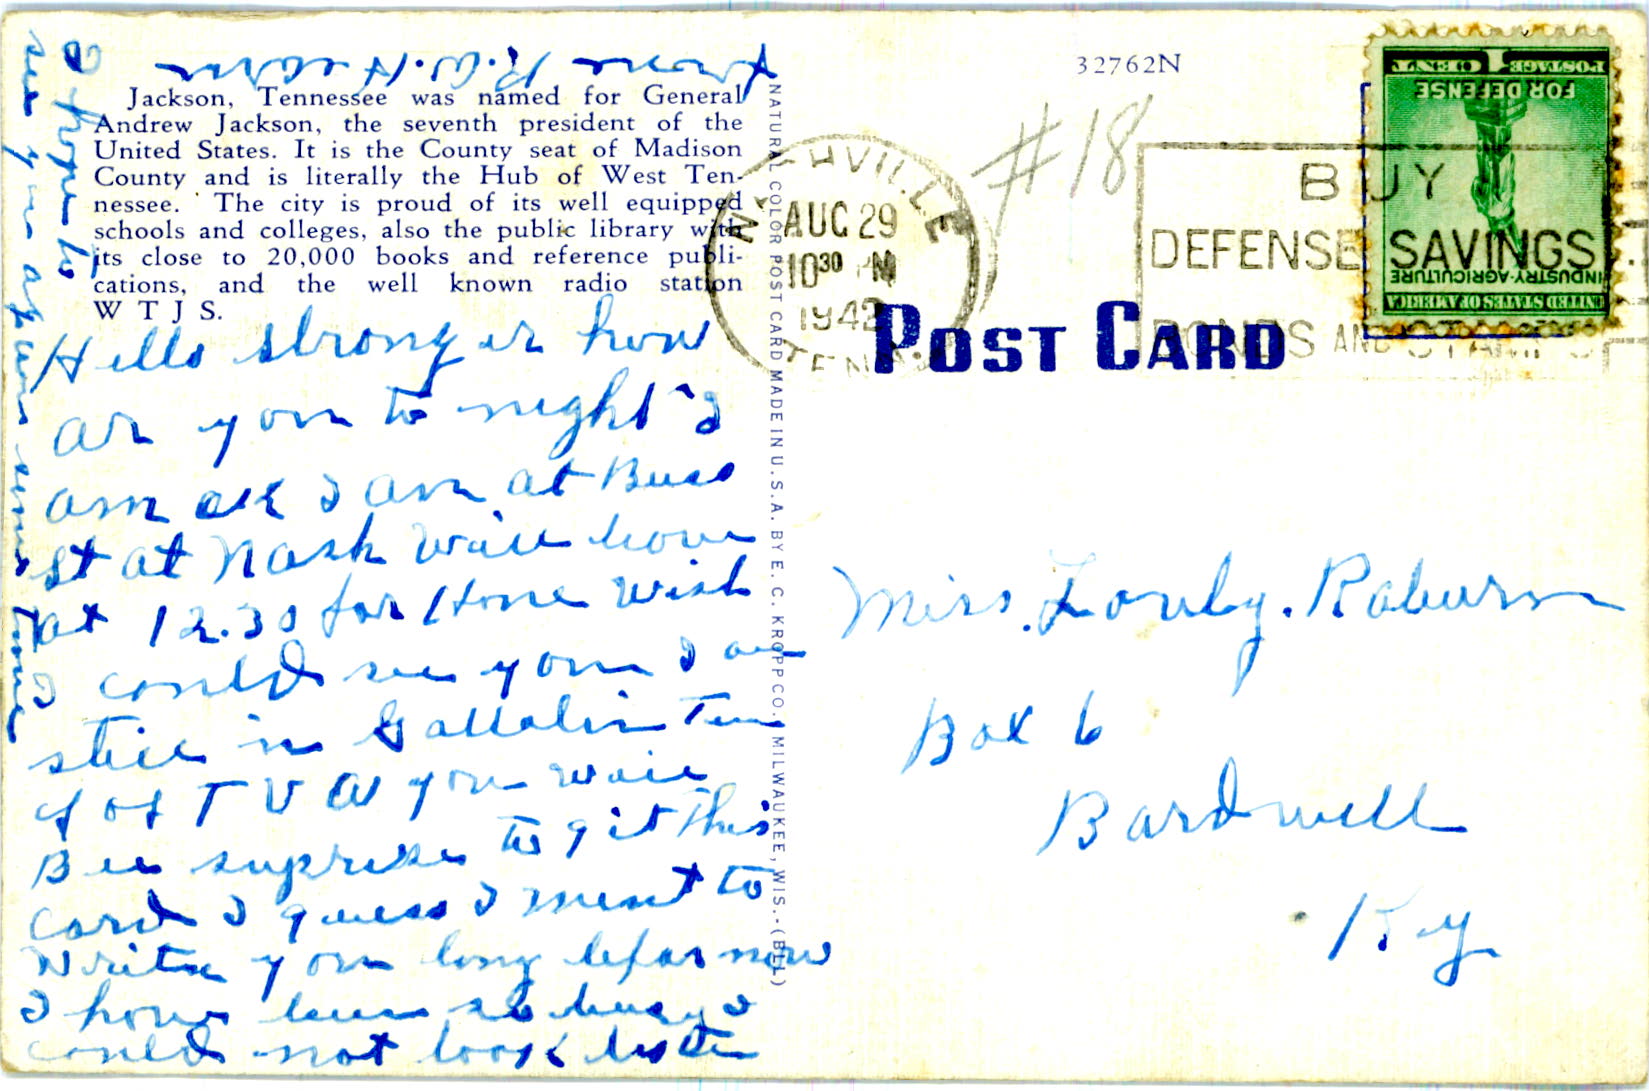 from R.W. H
32762N
#18
Jackson, Tennessee was named for General
Andrew Jackson, the seventh president of the
United States. It is the County seat of Madison
County and is literally the Hub of West Ten-
nessee. The city is proud of its well equipped
schools and colleges, also the public library with
its close to 20,000 books and reference publi-
cations, and the well known radio station
W T J S.
Hello stronger how
ar you to night I
am ok I am at Buss
st at Nash will leave
at 12.30 for Home wish
I could see you I am
still in Gallatin Tenn
of of T V A you will
Bee suprise to git this
card I guess I ment to
write you long befar now
I have been so busy I
could not look
I hope to
see you again some time
NATURAL COLOR POST CARD MADE IN U.S.A. BY E. C. KROPP CO., MILWAUKEE, WIS.-(BLL)
NASHVILLE
AUG 29
10 30 PM
1942
TENN.
BUY
DEFENSE SAVINGS
BONDS AND STAMPS
POST CARD
UNITED STATES OF AMERICA
INDUSTRY-AGRICULTURE
FOR DEFENSE
1 CENT POSTAGE
Miss. Louly. Raburn
Box 6
Bardwell
Ky